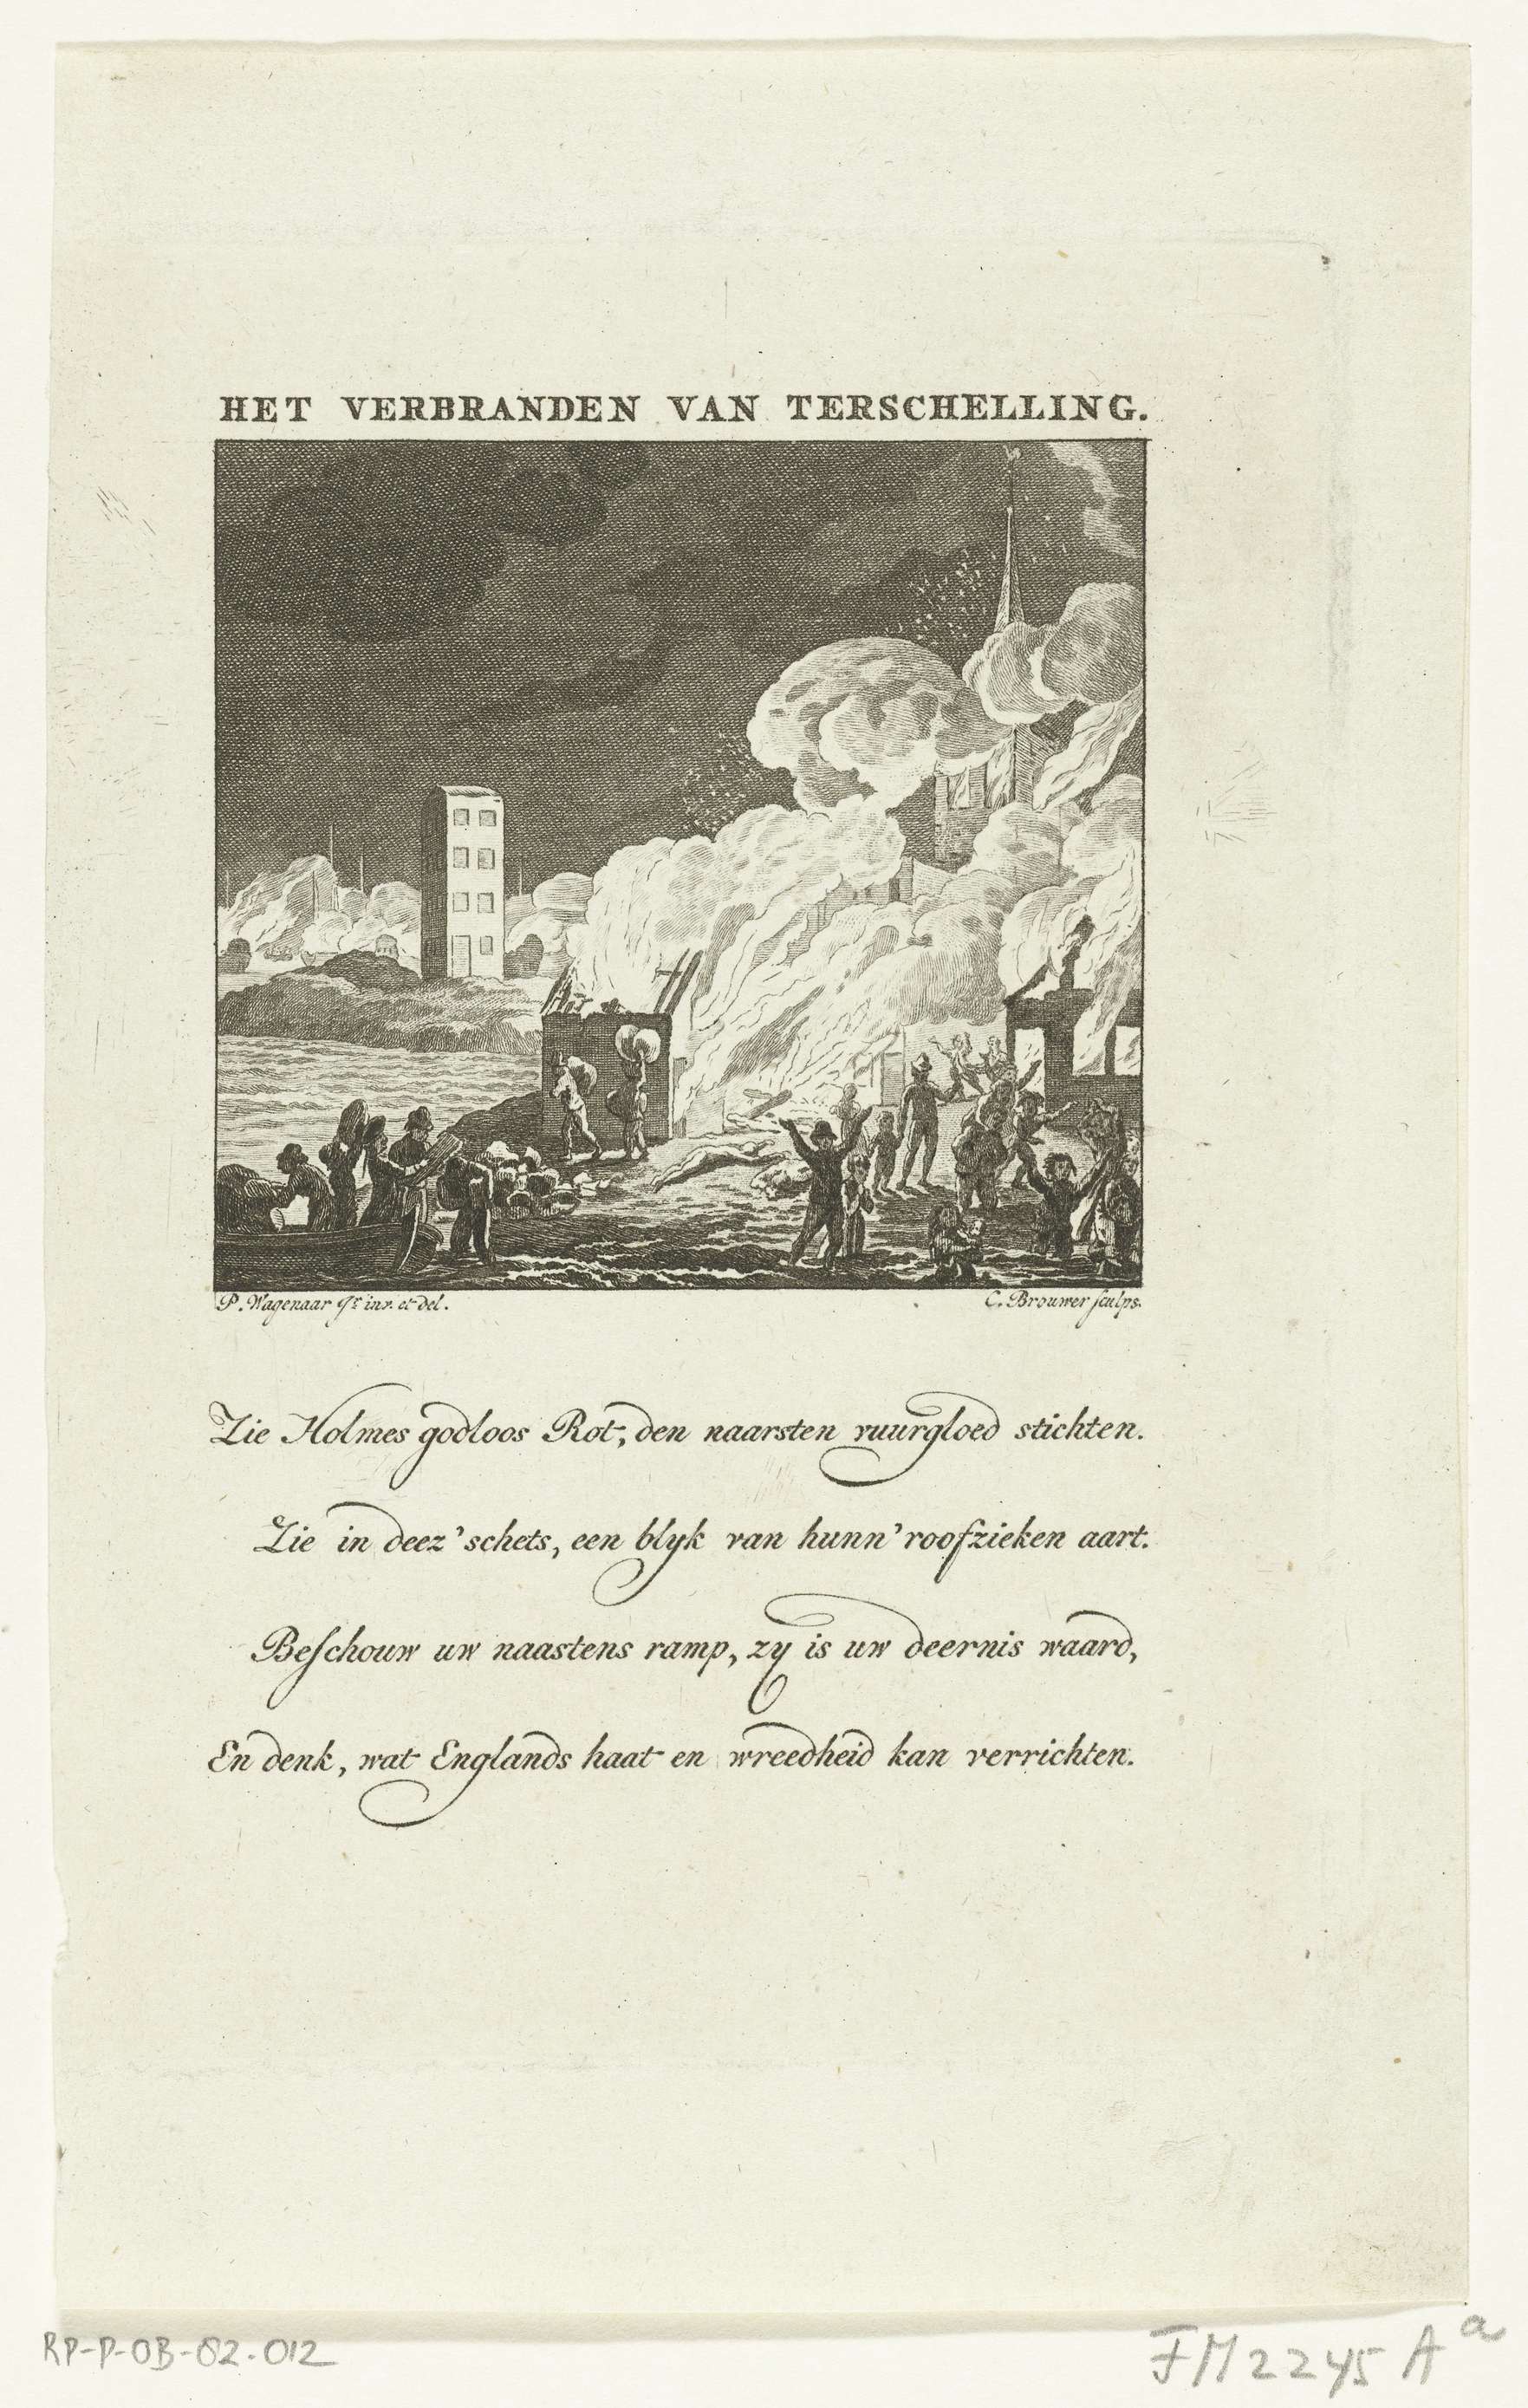 HET VERBRANDEN VAN TERSCHELLING.
P. Wagenaar Jr. inv. et del.
C. Brouwer sculps.
Zie Holmes godloos Rot, den naarsten vuurgloed stichten.
Zie in deez' schets, een blyk van hunn' roofzieken aart.
Beschouw uw naastens ramp, zy is uw deernis waard,
En denk, wat Englands haat en wreedheid kan verrichten.
RP-P-OB-82.012
FM 2245 A a